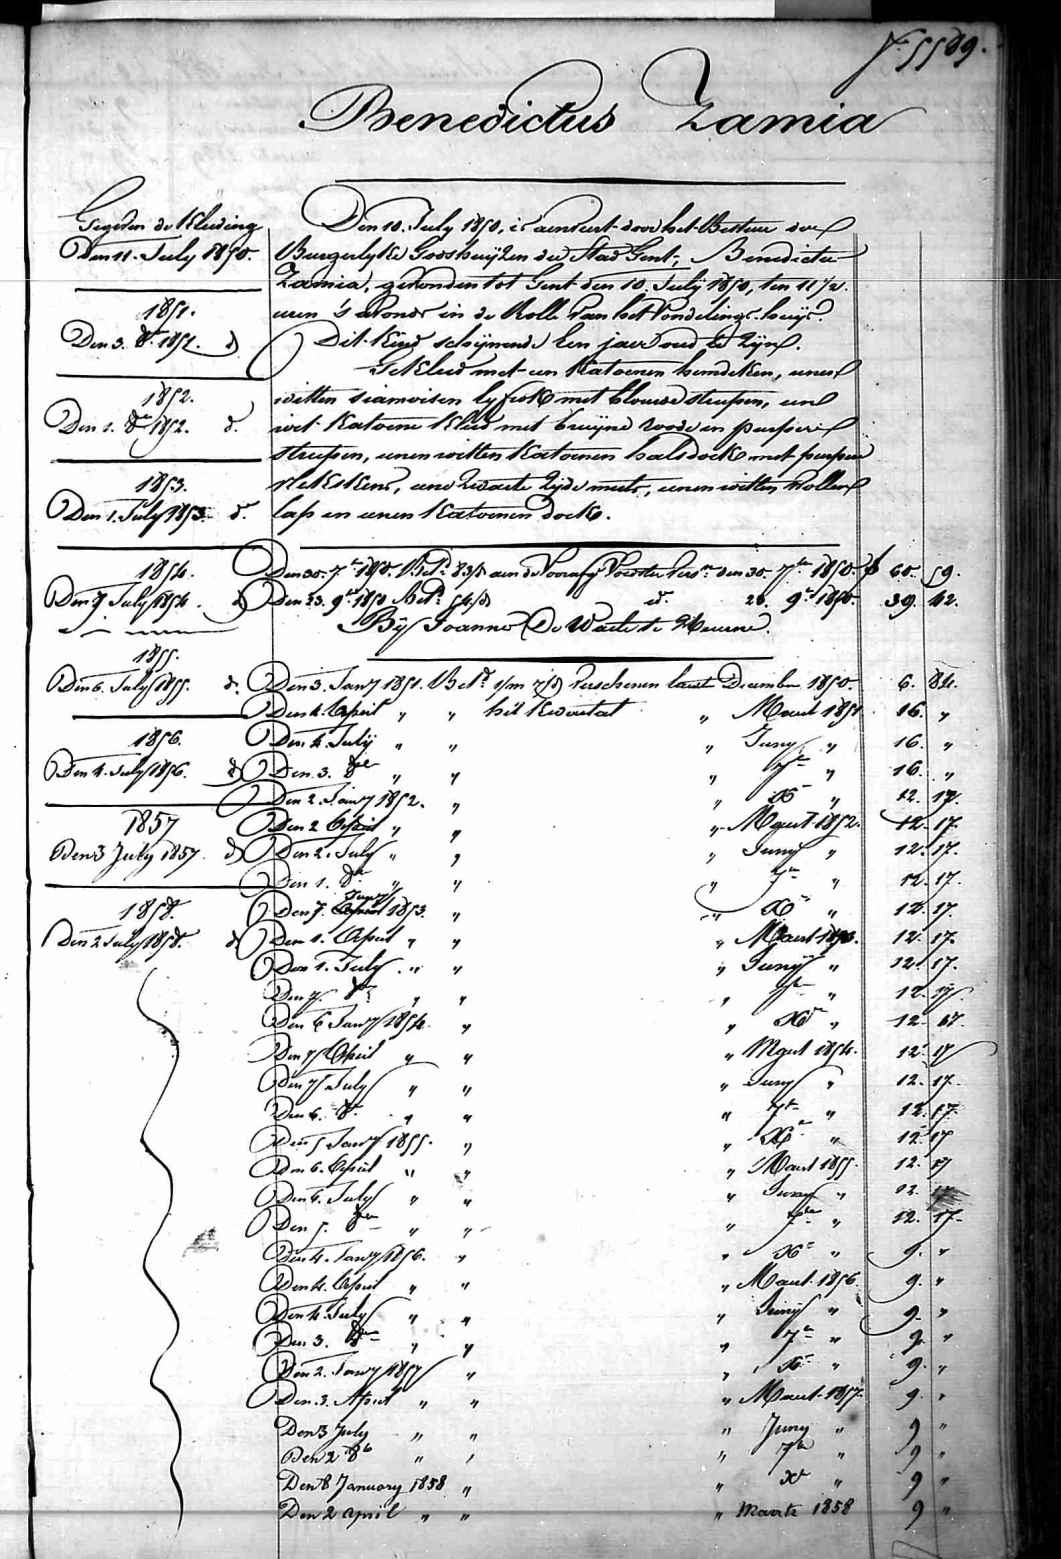 5569.
Benedictus Zamia
Gegeven de Kleeding
Den 11. July 1850.
1851.
Den 3. 8r. 1851. d
1852.
Den 1. 8re 1852. d.
1853.
Den 1. July 1853. d.
1854.
Den 7. July 1854. d
1855.
Den 6. July 1855. d.
1856.
Den 4. July 1856. d
1857
Den 3 July 1857. d
1858.
Den 2 July 1858. d
Den 10. July 1850, is aenveert door het Bestuur der
Burgerlyke Godshuyzen der Stad Gent, Benedictus
Zamia, gevonden tot Gent den 10. July 1850, ten 11 1/2.
uren 's avonds in de Rolle van het Vondelings-huys.
Dit Kind schynende een jaer oud te zyn.
Gekleed met een Katoenen hemdeken, eenen
witten siamoisen lyfrok met blauwe streepen, een
wit Katoene Kleed met bruyne roode en purpere
streepen, eenen witten Katoenen halsdoek met purpere
, eene zwarte zyde muts, eenen witten wollen
lap en eenen Katoenen doek.
Den 30. 7re 1850. Betd. aen de Voorste den 30. 7re 1850. f 60. 59.
Den 23. 9re 1850 Betd. id. 20. 9re 1850. 39. 42.
By Joannes De Waele te Meurne.
Den 3. Janry 1851. Betd. Verschenen laest December 1850. 6. 84.
Den 4. April " " het Kwartal " Maert 1851 16. "
Den 4. July " " " Juny " 16. "
Den 3. 8re " " " 7re " 16. "
Den 2. Janry 1852. " " Xr " 12. 17.
Den 2 April " " " Maert 1852. 12. 17.
Den 2. July " " " Juny " 12. 17.
Den 1. 8re " " " 7re " 12. 17.
Den 7. Janry 1853. " " Xr " 12. 17.
Den 1. April " " " Maert 1853. 12. 17.
Den 1. July " " " Juny " 12. 17.
Den 7. 8re " " " 7re " 12. 17.
Den 6 Janry 1854. " " Xr " 12. 17.
Den 7 April " " " Maert 1854. 12. 17
Den 7 July " " " Juny " 12. 17.
Den 6. 8r. " " " 7re " 12. 17.
Den 5 Janry 1855. " " Xr " 12. 17
Den 6. April " " " Maert 1855. 12. 17
Den 6. July " " " Juny " 12. 17
Den 5. 8re " " " 7re " 12. 17.
Den 4. Janry 1856. " " Xr " 9. "
Den 4. April " " " Maert 1856 9. "
Den 4 July " " " Juny " 9. "
Den 3. 8re " " " 7re " 9. "
Den 2. Janry 1857 " " Xr " 9. "
Den 3. April " " " Maert 1857. 9. "
Den 3 July " " " Juny " 9 "
Den 2 8b " " " 7re " 9 "
Den 8 January 1858 " " Xr " 9 "
Den 2 April " " " Maerte 1858 9 "